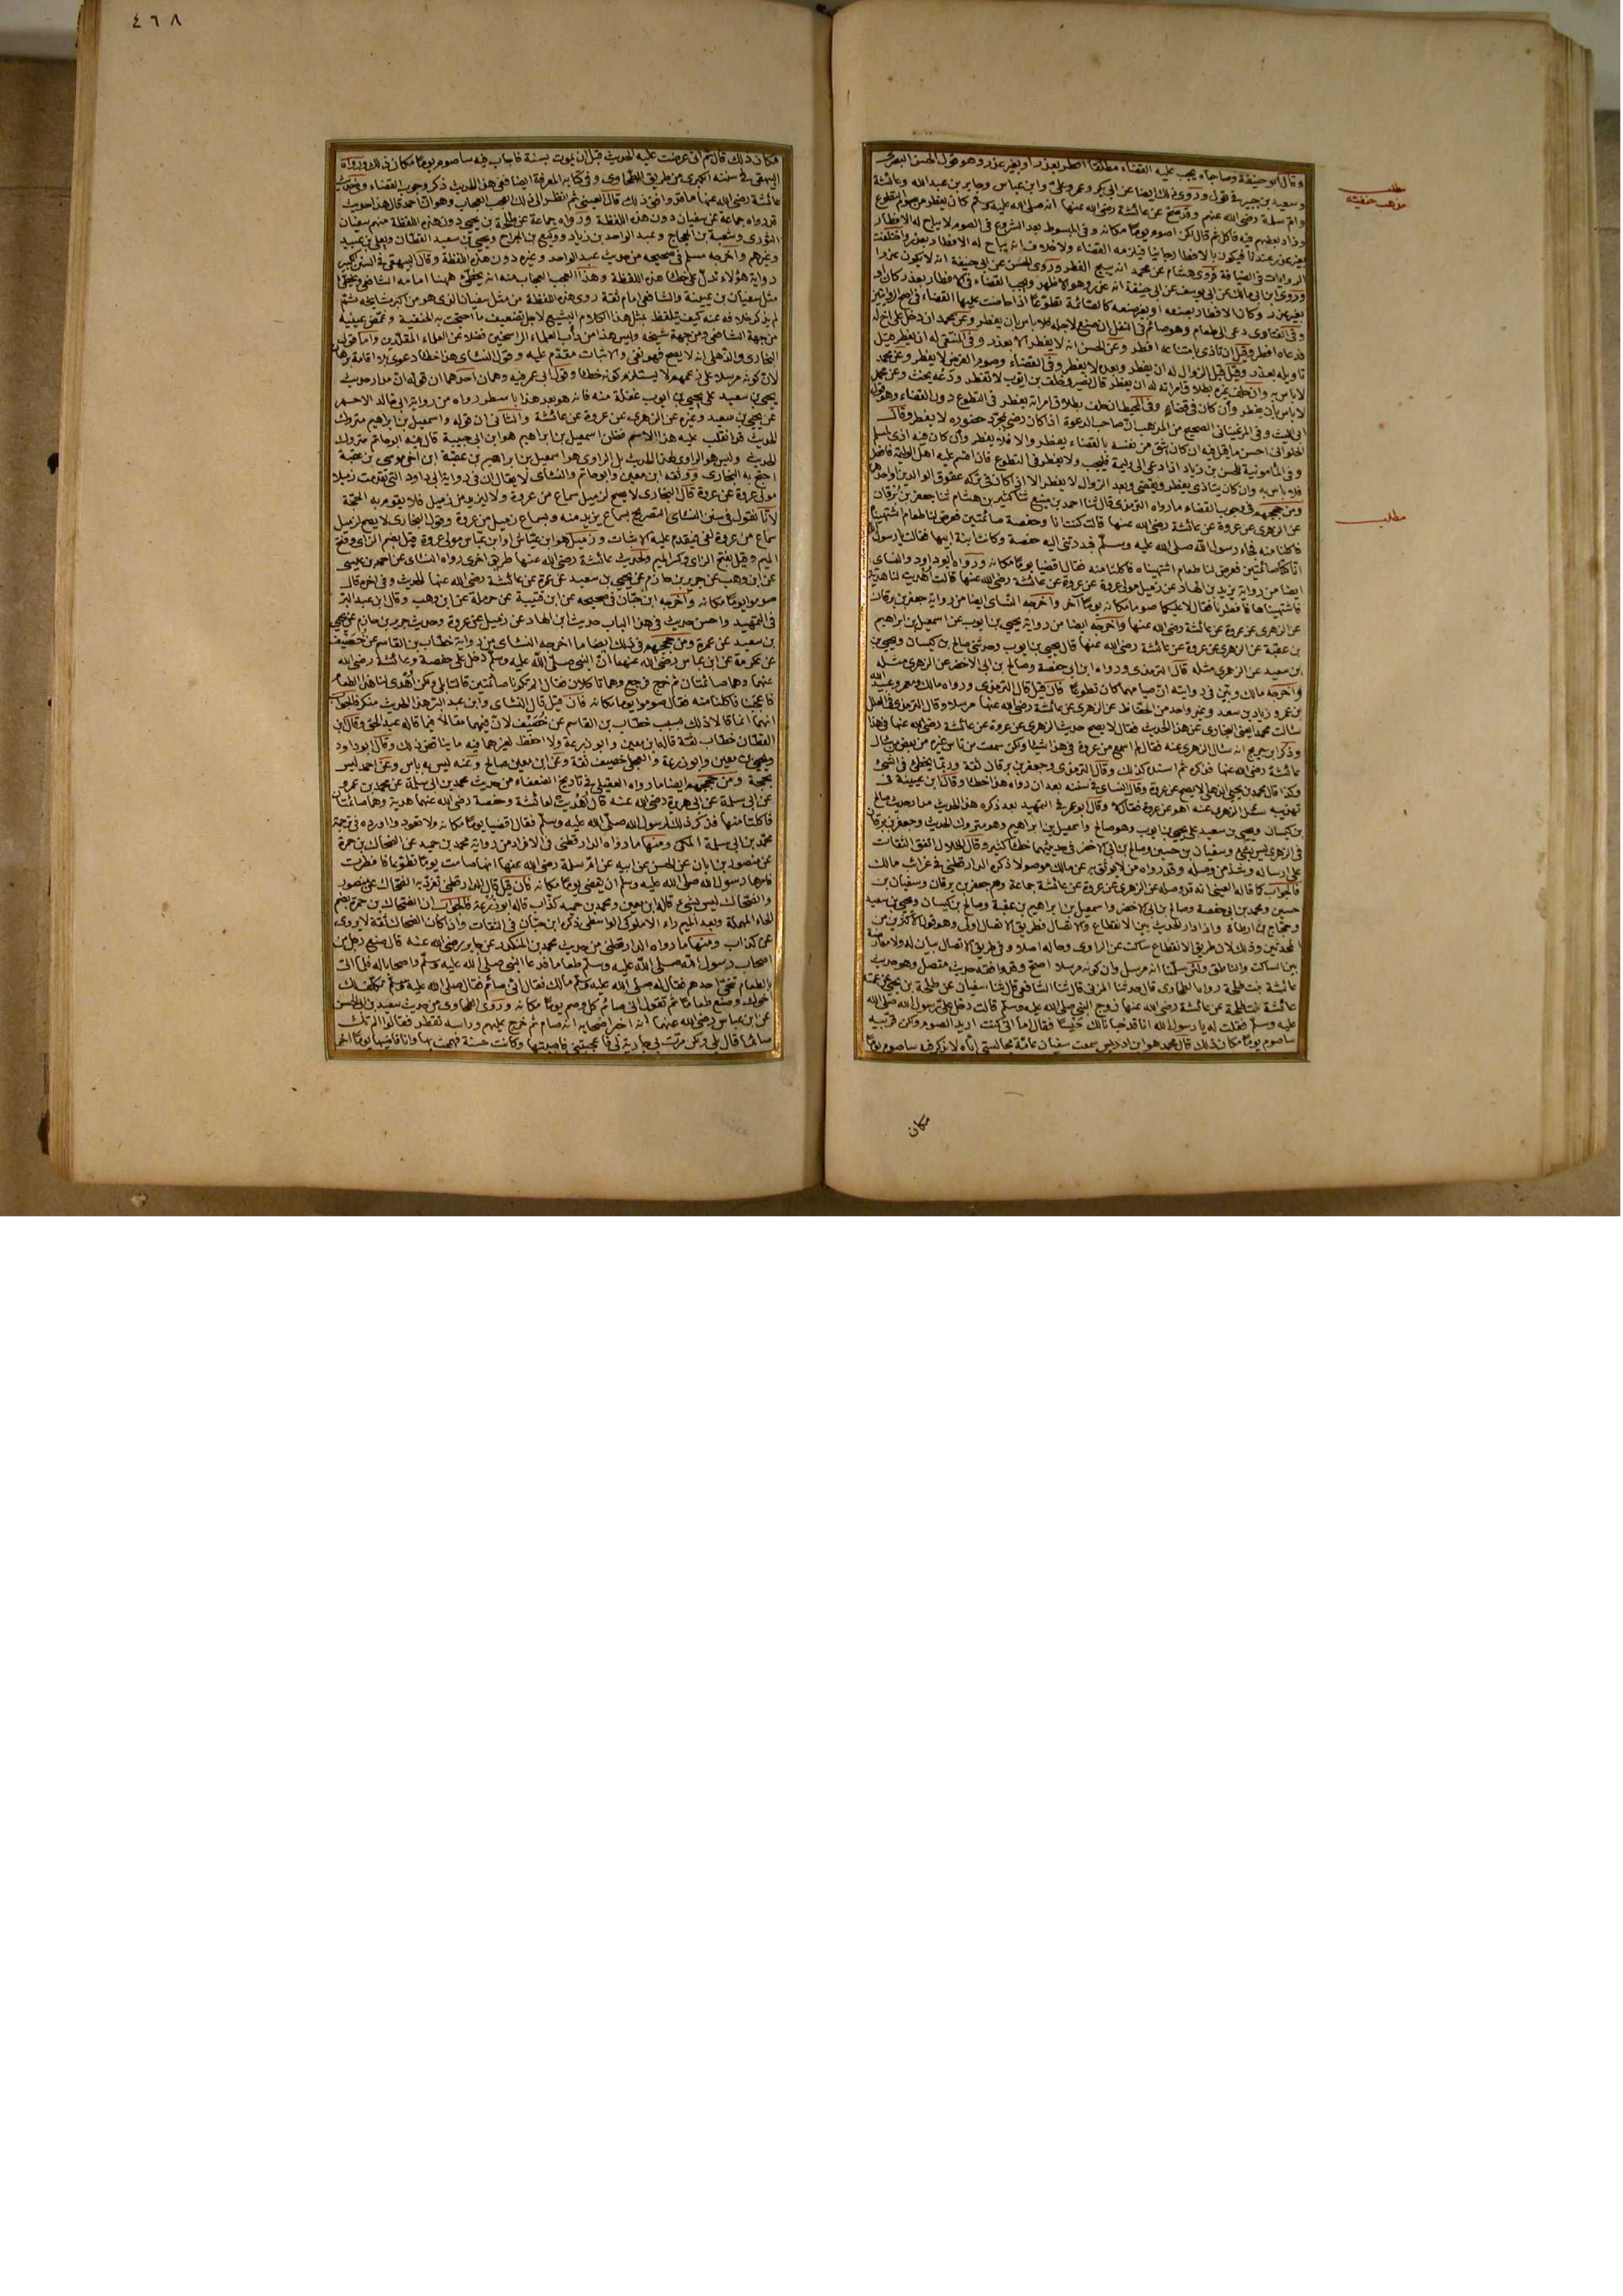 ٤٦٨
وقال ابو حنيفة وصاحباه يجب عليه القضاء مطلقا افطر بعذر او بغير عذر وهو قول الحسن البصرى
وسعيد بن جبير فى قول وروى ذلك ايضا عن ابى بكر وعمر وعلى وابن عباس وجابر بن عبد الله وعائشة
وام سلمة رضى الله عنهم وقد صح عن عائشة رضى الله عنها انه صلى الله عليه وسلم كان يفطر من صوم التطوع
وزاد بعضهم فيه فاكل ثم قال لكن اصوم يوما مكانه وفى المبسوط بعد الشروع فى الصوم لا يباح له الافطار
بغير عذر عندنا فيكون بالافطار جانيا فيلزمه القضاء ولا خلاف انه يباح له الافطار بعذر واختلفت
الروايات فى الضيافة فروى هشام عن محمد انه يبيح الفطر وروى الحسن عن ابى حنيفة انه لا يكون عذرا
وروى ابن ابى مالك عن ابى يوسف عن ابى حنيفة انه عذر وهو الاظهر ويجب القضاء فى الافطار بعذر كان او
بغير عذر وكان الافطار بصنعه او بغير صنعه كالصائمة تطوعا اذا حاضت عليها القضاء فى اصح الروايتين
وفى الفتاوى دعى الى طعام وهو صائم فى النفل ان صنع لاجله فلا باس بان يفطر وعن محمد ان دخل على اخ له
فدعاه افطر وقيل ان تاذى بامتناعه افطر وعن الحسن انه لا يفطر الا بعذر وفى المنتقى له ان يفطر قيل
تاويله بعذر وقيل قبل الزوال له ان يفطر وبعده لا يفطر وفى القضاء وصوم الفرض لا يفطر وعن محمد
لا باس به وان حلف غيره بطلاق امراته له ان يفطر قال نصير وخلف بن ايوب لا تفطر ودعه يحنث وعن محمد
لا باس بان يفطر وان كان فى قضاء وفى المحيط ان حلف بطلاق امراته يفطر فى التطوع دون القضاء وهو قول
ابى الليث وفى المرغينانى الصحيح من المذهب ان صاحب الدعوة اذا كان رضى بمجرد حضوره لا يفطر وقال
الحلوانى احسن ما قيل فيه ان كان يثق من نفسه بالقضاء يفطر والا فلا يفطر وان كان فيه اذى لمسلم
وفى المامونية للحسن بن زياد اذا دعى الى وليمة فليجب ولا يفطر فى التطوع فان اقسم عليه اهل الوليمة فافطر
فلا باس به وان كان يتاذى يفطر ويقضى وبعد الزوال لا يفطر الا اذا كان فى تركه عقوق الوالدين او احدهما
ومن حججهم فى وجوب القضاء ما رواه الترمذى قال ثنا احمد بن منيع ثنا كثير بن هشام ثنا جعفر بن برقان
عن الزهرى عن عروة عن عائشة رضى الله عنها قالت كنت انا وحفصة صائمتين فعرض لنا طعام اشتهيناه
فاكلنا منه فجاء رسول الله صلى الله عليه وسلم فبدرتنى اليه حفصة وكانت ابنة ابيها فقالت يا رسول الله
انا كنا صائمتين فعرض لنا طعام اشتهيناه فاكلنا منه فقال اقضيا يوما مكانه ورواه ابو داود والنسائى
ايضا من رواية يزيد بن الهاد عن زميل مولى عروة عن عروة عن عائشة رضى الله عنها قالت اهديت لنا هدية
فاشتهيناها فافطرنا فقال لا عليكما صوما مكانه يوما آخر واخرجه النسائى ايضا من رواية جعفر بن برقان
عن الزهرى عن عروة عن عائشة رضى الله عنها واخرجه ايضا من رواية يحيى بن ايوب عن اسمعيل بن ابراهيم
بن عقبة عن الزهرى عن عروة عن عائشة رضى الله عنها قال يحيى بن ايوب وحدثنى صالح بن كيسان ويحيى بن
بن سعيد عن الزهرى مثله قال الترمذى ورواه ابن ابى حفصة وصالح بن ابى الاخضر عن الزهرى مثله
واخرجه مالك وبين فى روايته ان صيامهما كان تطوعا فان قيل قال الترمذى ورواه مالك ومعمر وعبيد الله
بن عمر وزياد بن سعد وغير واحد من الحفاظ عن الزهرى عن عائشة رضى الله عنها مرسلا وقال الترمذى فى العلل
سالت محمدا يعنى البخارى عن هذا الحديث فقال لا يصح حديث الزهرى عن عروة عن عائشة رضى الله عنها فى هذا
وذكر ابن جريج انه سال الزهرى عنه فقال لم اسمع من عروة فى هذا شيئا ولكن سمعت من ناس عن بعض من سال
عائشة رضى الله عنها فذكره ثم اسنده كذلك وقال الترمذى وجعفر بن برقان ثقة وربما يخطئ فى الشئ
وكذا قال محمد بن يحيى الذهلى لا يصح عن عروة وقال النسائى فى سننه بعد ان رواه هذا خطا وقال ابن عيينة فى
تهذيبه سئل الزهرى عنه اهو عن عروة فقال لا وقال ابو عمر فى التمهيد بعد ذكره هذا الحديث مدار حديث صالح
بن كيسان ويحيى بن سعيد على يحيى بن ايوب وهو صالح واسمعيل بن ابراهيم وهو متروك الحديث وجعفر بن برقان
فى الزهرى ليس بشئ وسفيان بن حسين وصالح بن ابى الاخضر فى حديثهما خطا كثير وقال الخلال اتفق الثقات
على ارساله وشذ من وصله وقد رواه من لا يوثق به عن مالك موصولا ذكره الدارقطنى فى غرائب مالك
فالجواب كما قاله العينى انه قد وصله عن الزهرى عن عروة عن عائشة جماعة وهم جعفر بن برقان وسفيان بن
حسين ومحمد بن ابى حفصة وصالح بن ابى الاخضر واسمعيل بن ابراهيم بن عقبة وصالح بن كيسان ويحيى بن سعيد
وحجاج بن ارطاة واذا دار الحديث بين الانقطاع والاتصال فطريق الاتصال اولى وهو قول الاكثرين من
المحدثين وذلك لان طريق الانقطاع ساكت عن الراوى وحاله اصلا وفى طريق الاتصال بيان له ولا معارضة
بين الساكت والناطق ولئن سلمنا انه مرسل وان كونه مرسلا اصح فقد وافقه حديث متصل وهو حديث
عائشة بنت طلحة رواه الطحاوى قال حدثنا المزنى قال ثنا الشافعى قال ثنا سفيان عن طلحة بن يحيى عن عمته
عائشة بنت طلحة عن عائشة رضى الله عنها زوج النبى صلى الله عليه وسلم قالت دخل على رسول الله صلى الله
عليه وسلم فقلت له يا رسول الله انا قد خبانا لك حيسا فقال اما انى كنت اريد الصوم ولكن قربيه
ساصوم يوما مكان ذلك قال محمد هو ابن ادريس سمعت سفيان عامة مجالستى اياه لا يذكر فيه ساصوم يوما
مكان
مطلب
مذهب حنفيته
مطلب
مكان ذلك قال ثم انى عرضت عليه الحديث قبل ان يموت بسنة فاجاب فيه ساصوم يوما مكان ذلك ورواه
البيهقى فى سننه الكبرى من طريق الطحاوى وفى كتابه المعرفة ايضا ففى هذا الحديث ذكر وجوب القضاء وفى حديث
عائشة رضى الله عنها ما قد وافق ذلك قال العينى ثم انظر الى ذلك العجب العجاب وهو ان احمد قال هذا حديث
قد رواه جماعة عن سفيان دون هذه اللفظة ورواه جماعة عن طلحة بن يحيى دون هذه اللفظة منهم سفيان
الثورى وشعبة بن الحجاج وعبد الواحد بن زياد ووكيع بن الجراح ويحيى بن سعيد القطان ويعلى بن عبيد
وغيرهم واخرجه مسلم فى صحيحه من حديث عبد الواحد وغيره دون هذه اللفظة وقال البيهقى فى السنن الكبير
رواية هؤلاء تدل على خطا هذه اللفظة وهذا العجب العجاب منه انه يخطئ ههنا امامه الشافعى ويخطئ
مثل سفيان بن عيينة والشافعى امام ثقة روى هذه اللفظة من مثل سفيان الذى هو من اكبر مشايخه ثم
لم يذكر خلافه عنه كيف يتلفظ بمثل هذا الكلام البشيع لاجل تضعيف ما احتجت به الحنفية وغمض عينيه
من جهة الشافعى ومن جهة شيخه وليس هذا من داب العلماء الراسخين فضلا عن العلماء المقلدين واما قول
البخارى والذهلى انه لا يصح فهو نفى والاثبات مقدم عليه وقول النسائى هذا خطا دعوى بلا اقامة برهان
لان كونه مرسلا على زعمهم لا يستلزم كونه خطا وقول ابى عمر فيه وهمان احدهما ان قوله ان مدار حديث
يحيى بن سعيد على يحيى بن ايوب غفلة منه فانه هو بعد هذا باسطر رواه من رواية ابى خالد الاحمر
عن يحيى بن سعيد وغيره عن الزهرى عن عروة عن عائشة والثانى ان قوله واسمعيل بن ابراهيم متروك
الحديث قد انقلب عليه هذا الاسم فظن اسمعيل بن ابراهيم هو ابن ابى حبيبة قال فيه ابو حاتم متروك
الحديث وليس هو الراوى لهذا الحديث بل الراوى هو اسمعيل بن ابراهيم بن عقبة ابن اخى موسى بن عقبة
احتج به البخارى ووثقه ابن معين وابو حاتم والنسائى لا يقال ان فى رواية ابى داود التى تقدمت زميلا
مولى عروة عن عروة قال البخارى لا يصح لزميل سماع من عروة ولا ليزيد من زميل فلا يقوم به الحجة
لانا نقول فى سنن النسائى التصريح بسماع يزيد منه وبسماع زميل من عروة وقول البخارى لا يصح لزميل
سماع من عروة نفى فيقدم عليه الاثبات وزميل هو ابن عباس مولى عروة قيل بضم الزاى وفتح
الميم وقيل بفتح الزاى وكسر الميم ولحديث عائشة رضى الله عنها طريق اخرى رواه النسائى عن احمد بن عيسى
عن ابن وهب عن جرير بن حازم عن يحيى بن سعيد عن عمرة عن عائشة رضى الله عنها الحديث وفى اخره قال
صوموا يوما مكانه واخرجه ابن حبان فى صحيحه عن ابن قتيبة عن حرملة عن ابن وهب وقال ابن عبد البر
فى التمهيد واحسن حديث فى هذا الباب حديث ابن الهاد عن زميل عن عروة وحديث جرير بن حازم عن يحيى
بن سعيد عن عمرة ومن حججهم فى ذلك ايضا ما اخرجه النسائى من رواية خطاب بن القاسم عن خصيف
عن عكرمة عن ابن عباس رضى الله عنهما ان النبى صلى الله عليه وسلم دخل على حفصة وعائشة رضى الله
عنهما وهما صائمتان ثم خرج فرجع وهما تاكلان فقال الم تكونا صائمتين قالتا بلى ولكن اهدى لنا هذا الطعام
فاعجبنا فاكلنا منه فقال صوموا يوما مكانه فان قيل قال النسائى وابن عبد البر هذا الحديث منكر فالجواب
انهما انما قالا ذلك بسبب خطاب بن القاسم عن خصيف لان فيهما مقالا فيما قاله عبد الحق وقال ابن
القطان خطاب ثقة قاله ابن معين وابو زرعة ولا احفظ لغيرهما فيه ما يناقض ذلك وقال ابو داود
ويحيى بن معين وابو زرعة والعجلى خصيف ثقة وعن ابن معين صالح وعنه ليس به باس وعن احمد ليس
بحجة ومن حججهم ايضا ما رواه العقيلى فى تاريخ الضعفاء من حديث محمد بن ابى سلمة عن محمد بن عمرو
عن ابى سلمة عن ابى هريرة رضى الله عنه قال اهديت لعائشة وحفصة رضى الله عنهما هدية وهما صائمتان
فاكلتا منها فذكر ذلك لرسول الله صلى الله عليه وسلم فقال اقضيا يوما مكانه ولا تعودا واورده فى ترجمة
محمد بن ابى سلمة المكى ومنها ما رواه الدارقطنى فى الافراد من رواية محمد بن حميد عن الضحاك بن حمرة
عن منصور بن ابان عن الحسن عن ابيه عن ام سلمة رضى الله عنها انها صامت يوما تطوعا فافطرت
فامرها رسول الله صلى الله عليه وسلم ان تقضى يوما مكانه فان قيل قال الدارقطنى تفرد به الضحاك عن منصور
والضحاك ليس بشئ قاله ابن معين ومحمد بن حميد كذاب قاله ابو زرعة فالجواب ان الضحاك بن حمرة بضم
الحاء المهملة وبعد الميم راء الاملوكى الواسطى ذكره ابن حبان فى الثقات واذا كان الضحاك ثقة لا يروى
عن كذاب ومنها ما رواه الدارقطنى من حديث محمد بن المنكدر عن جابر رضى الله عنه قال صنع رجل من
اصحاب رسول الله صلى الله عليه وسلم طعاما فدعا النبى صلى الله عليه وسلم واصحابا له فلما اتى
بالطعام تنحى احدهم فقال له صلى الله عليه وسلم مالك فقال انى صائم فقال صلى الله عليه وسلم تكلف لك
اخوك وصنع طعاما ثم تقول انى صائم كل وصم يوما مكانه وروى الطحاوى من حديث سعيد بن ابى الحسن
عن ابن عباس رضى الله عنهما انه اخبر اصحابه انه صام ثم خرج عليهم وراسه يقطر فقالوا الم تك
صائما قال بلى ولكن مرت بى جارية لى فاعجبتنى فاصبتها وكانت حسنة فهممت بها وانا قاضيها يوما آخر